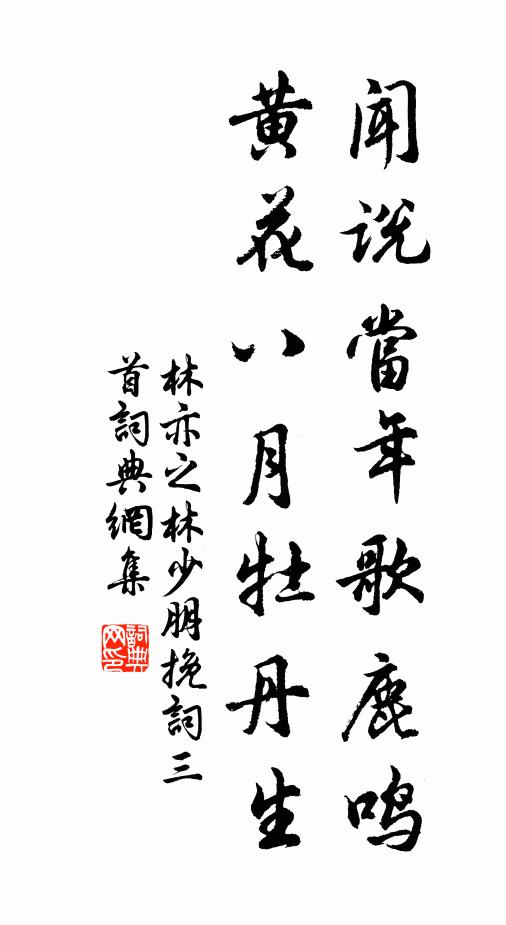 闻说當年歌鹿鸣
黄花八月牡丹生
林亦之林少朋挽詞三
首詞典網集
詞典网印